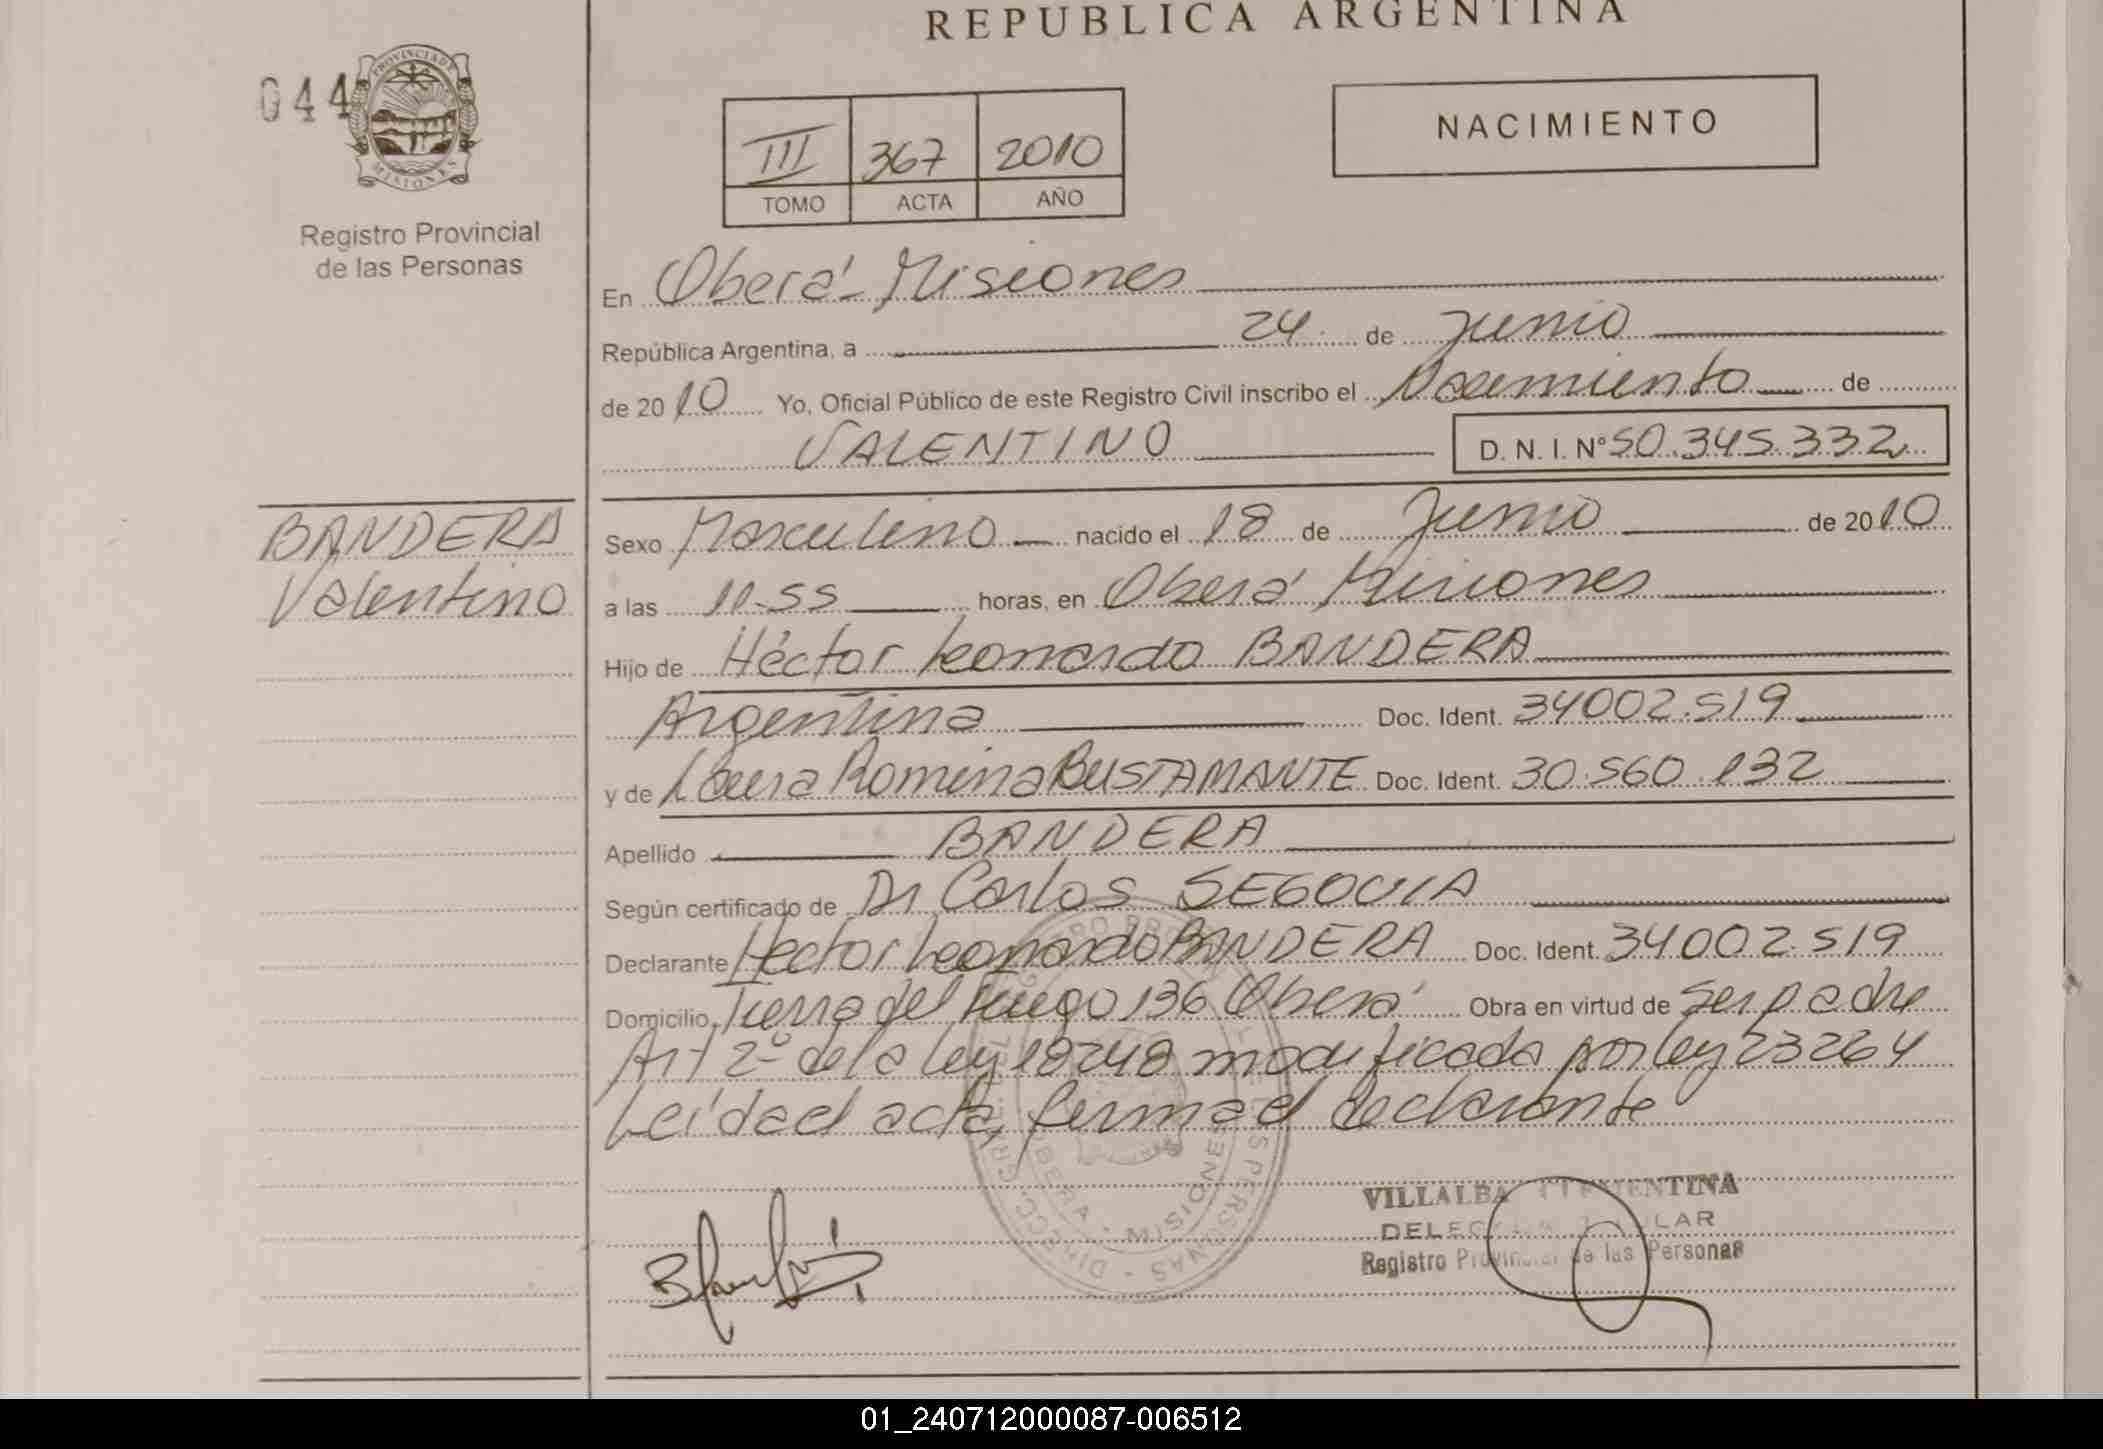 REPUBLICA ARGENTINA
044
PROVINCIA DE
MISIONES
Registro Provincial
de las Personas
III 367 2010
TOMO ACTA AÑO
NACIMIENTO
En Oberá - Misiones
República Argentina, a 24 de Junio
de 2010 Yo, Oficial Público de este Registro Civil inscribo el Nacimiento de
VALENTINO D. N. I. Nº 50.345.332
BANDERA
Valentino
Sexo Masculino nacido el 18 de Junio de 2010
a las 11.55 horas, en Oberá Misiones
Hijo de Héctor Leonardo BANDERA
Argentina Doc. Ident. 34002.519
y de Laura Romina BUSTAMANTE Doc. Ident. 30.560.132
Apellido BANDERA
Según certificado de Dr Carlos SEGOVIA
Declarante Hector Leonardo BANDERA Doc. Ident. 34002.519
Domicilio Tierra del Fuego 136 Oberá Obra en virtud de ser padre
Art 2º de la ley 18248 modificada por ley 23264
Leída el acta, firma el declarante
OBERA - MISIONES
VILLALBA CLEMENTINA
DELEGADA TITULAR
Registro Provincial de las Personas
01_240712000087-006512